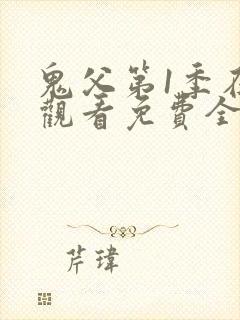 鬼父第1季在
觀看免費全
芹瑋